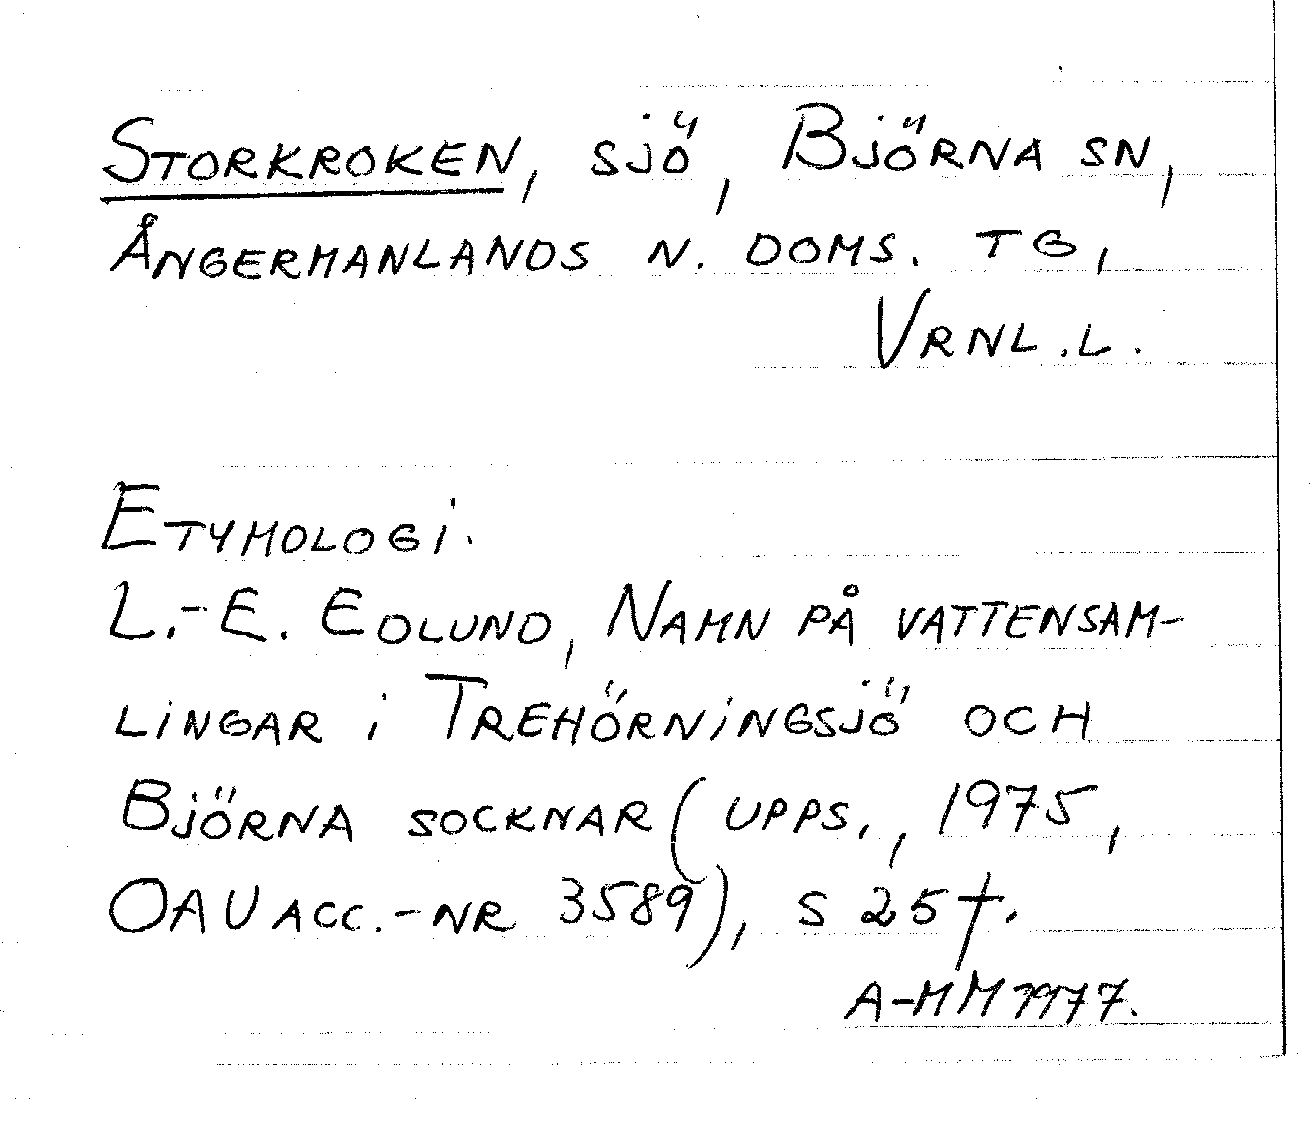 STORKROKEN, SJÖ, BJÖRNA SN,
ÅNGERMANLANDS N. DOMS. TG,
VRNL.L.
ETYMOLOGI.
L.-E. EDLUND, NAMN PÅ VATTENSAM-
LINGAR I TREHÖRNINGSJÖ OCH
BJÖRNA SOCKNAR (UPPS., 1975,
OAU ACC.-NR 3589), S 25 f.
A-MM 1977.